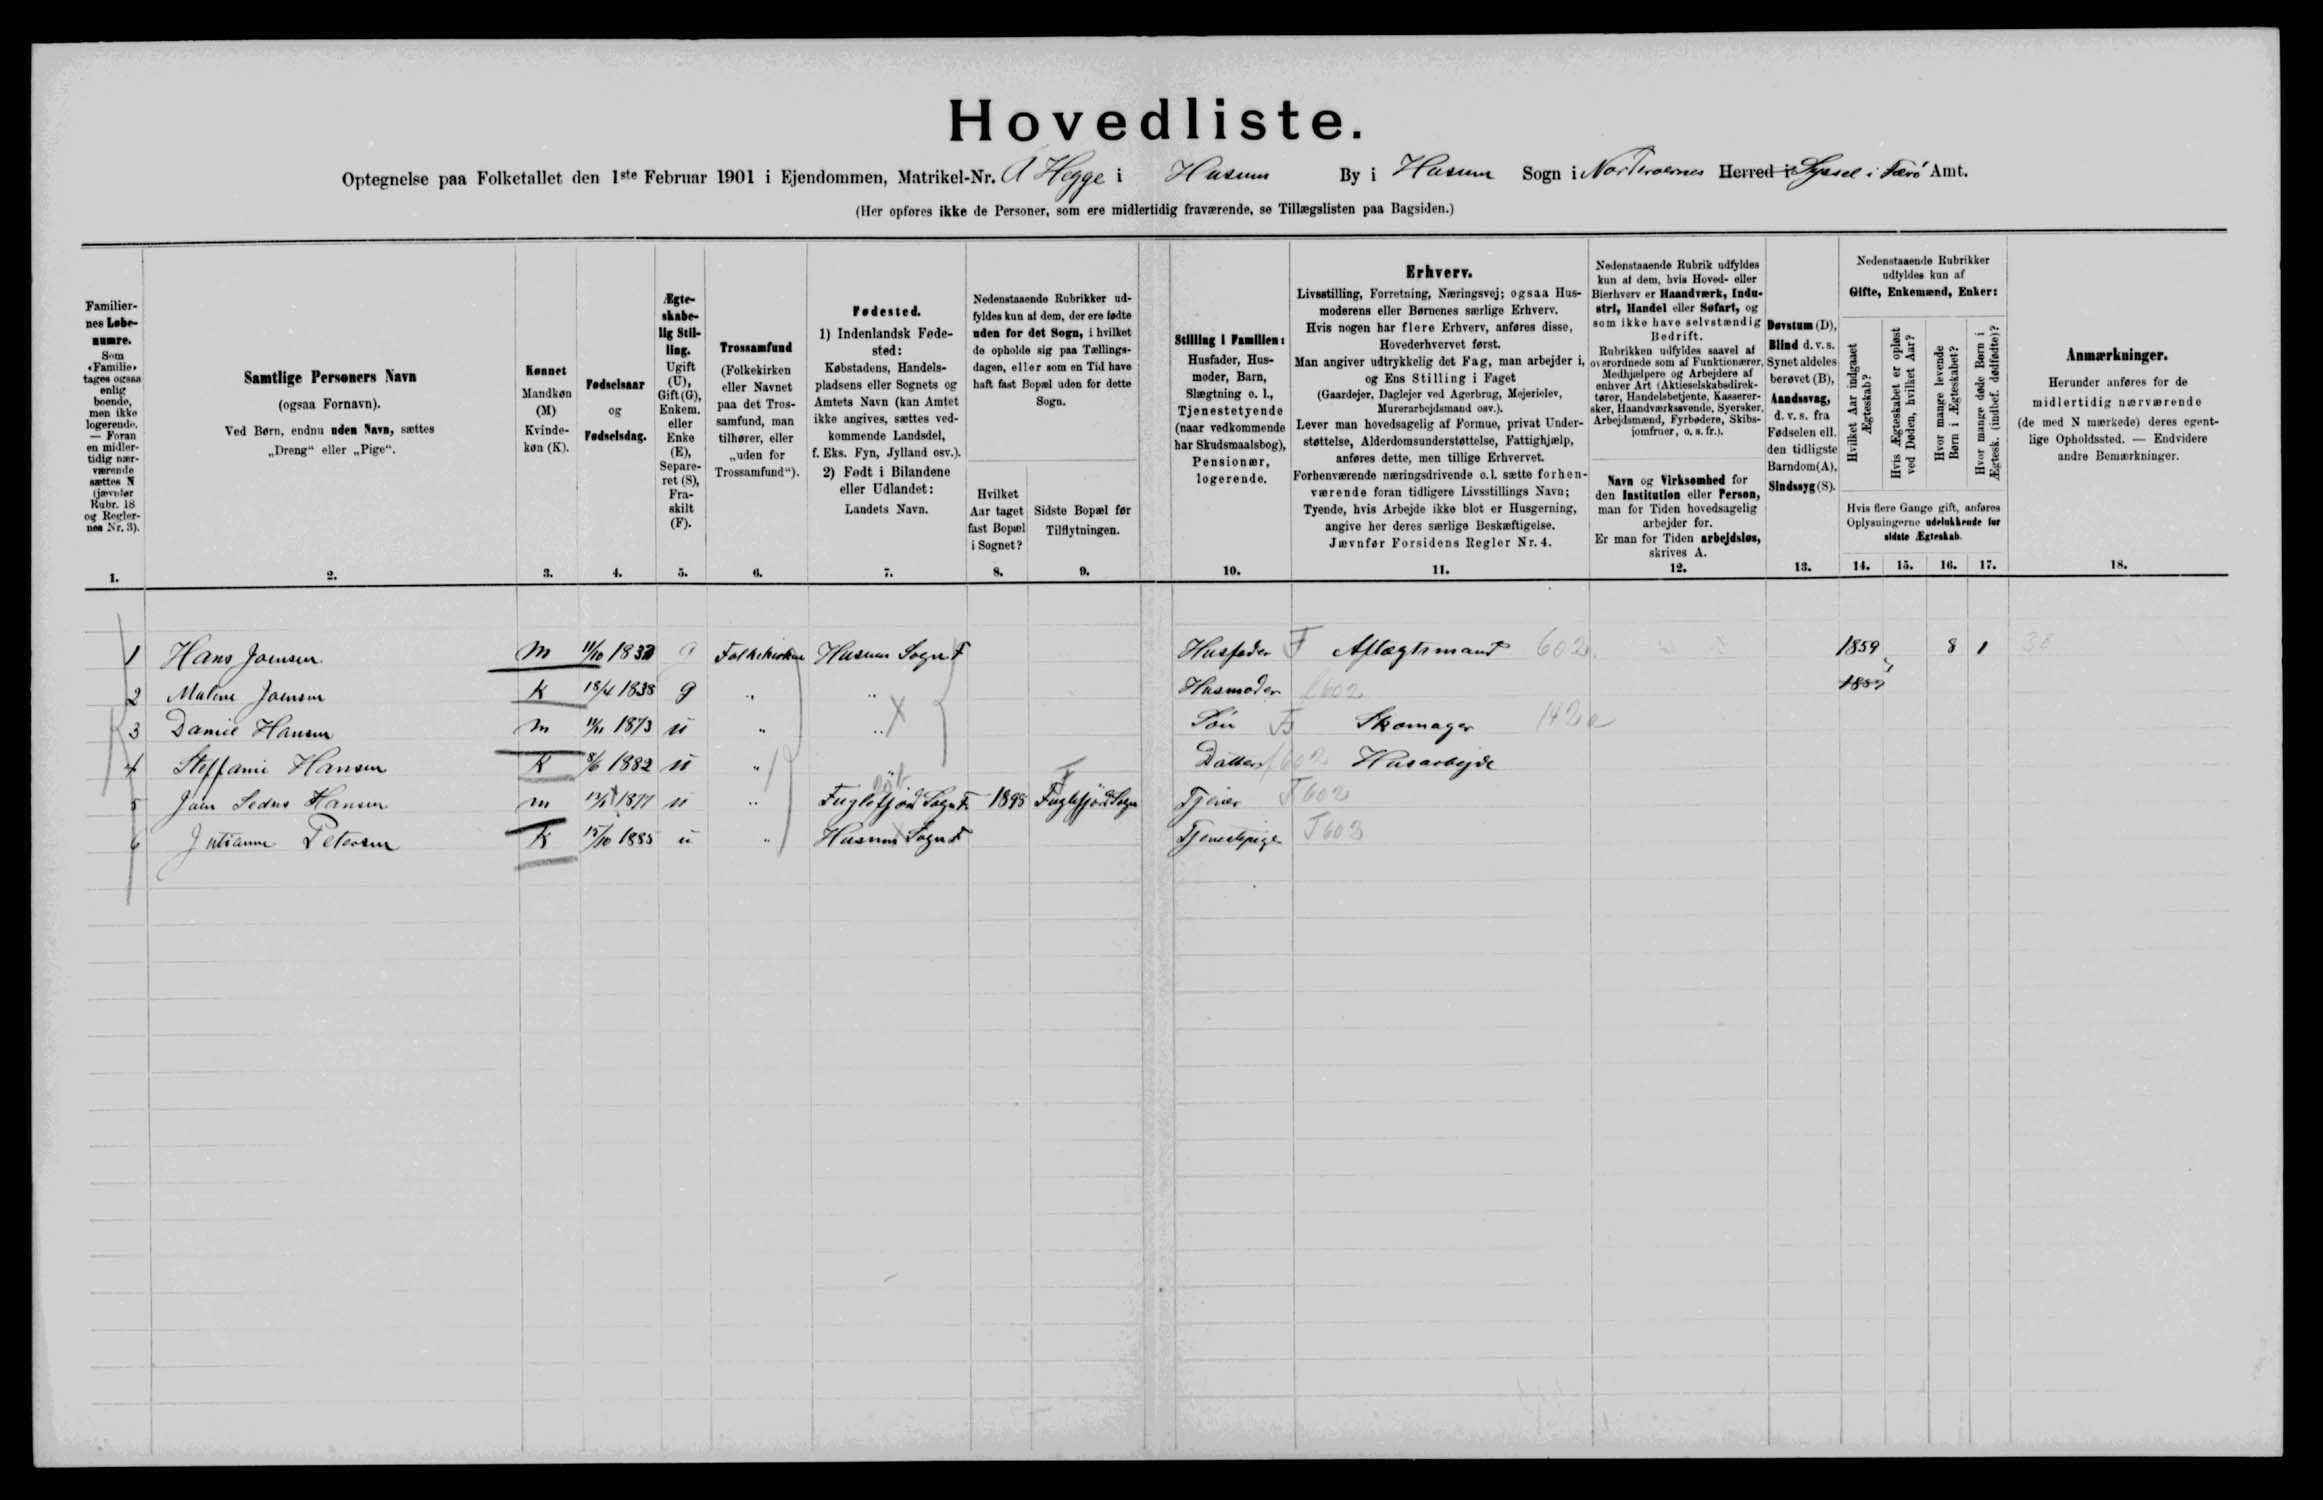 Hovedliste.
Optegnelse paa Folketallet den 1ste Februar 1901 i Ejendommen, Matrikel-Nr. Á Hegge i Husum By i Husum Sogn i Norderøernes Herred i Syssel i Færø Amt.
(Her opføres ikke de Personer, som ere midlertidig fraværende, se Tillægslisten paa Bagsiden.)
Familier-
nes Løbe-
numre.
Som
«Familie»
tages ogsaa
enlig
boende,
men ikke
logerende.
— Foran
en midler-
tidig nær-
værende
sættes N
(jævnfør
Rubr. 18
og Regler-
nes Nr. 3).
1.
Samtlige Personers Navn
(ogsaa Fornavn).
Ved Børn, endnu uden Navn, sættes
„Dreng“ eller „Pige“.
2.
Kønnet
Mandkøn
(M)
Kvinde-
køn (K).
3.
Fødselsaar
og
Fødselsdag.
4.
Ægte-
skabe-
lig Stil-
ling.
Ugift
(U),
Gift (G),
Enkem.
eller
Enke
(E),
Separe-
ret (S),
Fra-
skilt
(F).
5.
Trossamfund
(Folkekirken
eller Navnet
paa det Tros-
samfund, man
tilhører, eller
„uden for
Trossamfund“).
6.
Fødested.
1) Indenlandsk Føde-
sted:
Købstadens, Handels-
pladsens eller Sognets og
Amtets Navn (kan Amtet
ikke angives, sættes ved-
kommende Landsdel,
f. Eks. Fyn, Jylland osv.).
2) Født i Bilandene
eller Udlandet:
Landets Navn.
7.
Nedenstaaende Rubrikker ud-
fyldes kun af dem, der ere fødte
uden for det Sogn, i hvilket
de opholde sig paa Tællings-
dagen, eller som en Tid have
haft fast Bopæl uden for dette
Sogn.
Hvilket
Aar taget
fast Bopæl
i Sognet?
8.
Sidste Bopæl før
Tilflytningen.
9.
Stilling i Familien:
Husfader, Hus-
moder, Barn,
Slægtning o. l.,
Tjenestetyende
(naar vedkommende
har Skudsmaalsbog),
Pensionær,
logerende.
10.
Erhverv.
Livsstilling, Forretning, Næringsvej; ogsaa Hus-
moderens eller Børnenes særlige Erhverv.
Hvis nogen har flere Erhverv, anføres disse,
Hovederhvervet først.
Man angiver udtrykkelig det Fag, man arbejder i,
og Ens Stilling i Faget
(Gaardejer, Daglejer ved Agerbrug, Mejerielev,
Murerarbejdsmand osv.).
Lever man hovedsagelig af Formue, privat Under-
støttelse, Alderdomsunderstøttelse, Fattighjælp,
anføres dette, men tillige Erhvervet.
Forhenværende næringsdrivende o. l. sætte forhen-
værende foran tidligere Livsstillings Navn;
Tyende, hvis Arbejde ikke blot er Husgerning,
angive her deres særlige Beskæftigelse.
Jævnfør Forsidens Regler Nr. 4.
11.
Nedenstaaende Rubrik udfyldes
kun af dem, hvis Hoved- eller
Bierhverv er Haandværk, Indu-
stri, Handel eller Søfart, og
som ikke have selvstændig
Bedrift.
Rubrikken udfyldes saavel af
overordnede som af Funktionærer,
Medhjælpere og Arbejdere af
enhver Art (Aktieselskabsdirek-
tører, Handelsbetjente, Kasserer-
sker, Haandværkssvende, Syersker,
Arbejdsmænd, Fyrbødere, Skibs-
jomfruer, o. s. fr.).
Navn og Virksomhed for
den Institution eller Person,
man for Tiden hovedsagelig
arbejder for.
Er man for Tiden arbejdsløs,
skrives A.
12.
Døvstum (D),
Blind d. v. s.
Synet aldeles
berøvet (B),
Aandssvag,
d. v. s. fra
Fødselen ell.
den tidligste
Barndom (A),
Sindssyg (S).
13.
Nedenstaaende Rubrikker
udfyldes kun af
Gifte, Enkemænd, Enker:
Hvilket Aar indgaaet
Ægteskab?
Hvis Ægteskabet er opløst
ved Døden, hvilket Aar?
Hvor mange levende
Børn i Ægteskabet?
Hvor mange døde Børn i
Ægtesk. (indbef. dødfødte)?
Hvis flere Gange gift, anføres
Oplysningerne udelukkende for
sidste Ægteskab.
14. 15. 16. 17.
Anmærkninger.
Herunder anføres for de
midlertidig nærværende
(de med N mærkede) deres egent-
lige Opholdssted. — Endvidere
andre Bemærkninger.
18.
1 Hans Joensen M 11/10 1832 g Folkekirken Husum Sogn F Husfader F Aftægtsmand 602 1859 8 1 38
2 Maline Joensen K 1838 g „ „ Husmoder f602
3 Daniel Hansen M 1873 u „ „ Søn Fs Skomager 142a
4 Steffanie Hansen K 8/6 1882 u „ „ Datter f602 Husarbejde
5 Joen Sedus Hansen M 1877 u „ Fuglefjord Sogn F. 1895 Fuglefjord Sogn Tjener T602
6 Julianne Petersen K 15/10 1885 u „ Husum Sogn F Tjenestepige T602